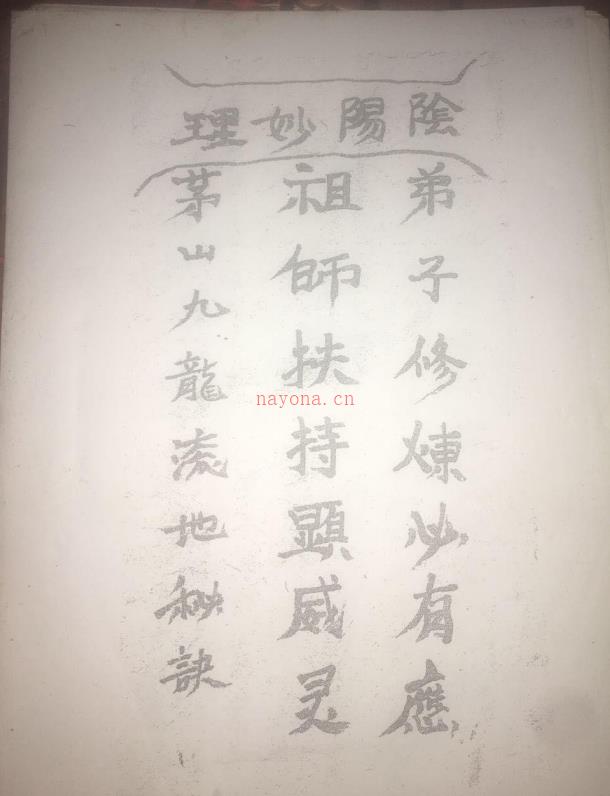 陰陽妙理
弟子修煉必有應
祖師扶持顕威灵
茅山九龍流地秘訣
nayona.cn